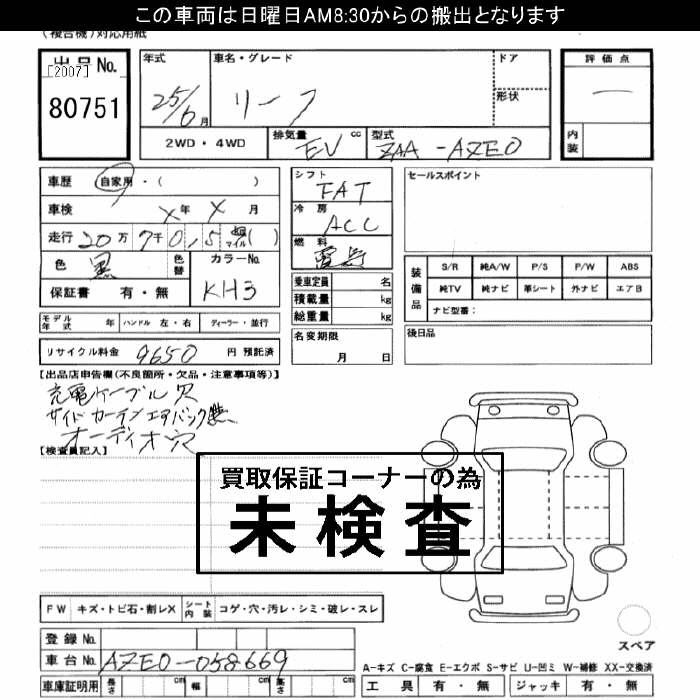 この車両は日曜日AM8:30からの搬出となります
(複合機)対応用紙
出品No.
[2007]
80751
年式
25/6月
車名・グレード
リーフ
ドア
形状
評価点
内装
2WD・4WD
排気量 EV cc
型式 ZAA-AZE0
車歴 自家用・( )
車検 X年 X月
走行 20万7千0,5
マイル( )
色 黒
色替
カラーNo. KH3
保証書 有・無
シフト FAT
冷房 ACC
燃料 電気
乗車定員 名
積載量 kg
総重量 kg
セールスポイント
装備品
S/R 純A/W P/S P/W ABS
純TV 純ナビ 革シート 外ナビ エアB
ナビ型番:
モデル年式 年 ハンドル 左・右 ディーラー・並行
名変期限
月 日
後日品
リサイクル料金 9650 円 預託済
【出品店申告欄(不良箇所・欠品・注意事項等)】
充電ケーブル欠
サイドカーテンエアバック無
オーディオ欠
【検査員記入】
買取保証コーナーの為
未検査
FW キズ・トビ石・割レX シート内装 コゲ・穴・汚レ・シミ・破レ・スレ
スペア
登録No.
車台No. AZE0-058669
A-キズ C-腐食 E-エクボ S-サビ U-凹ミ W-補修 XX-交換済
車庫証明用 長さ cm 幅 cm 高さ cm
工具 有・無 ジャッキ 有・無